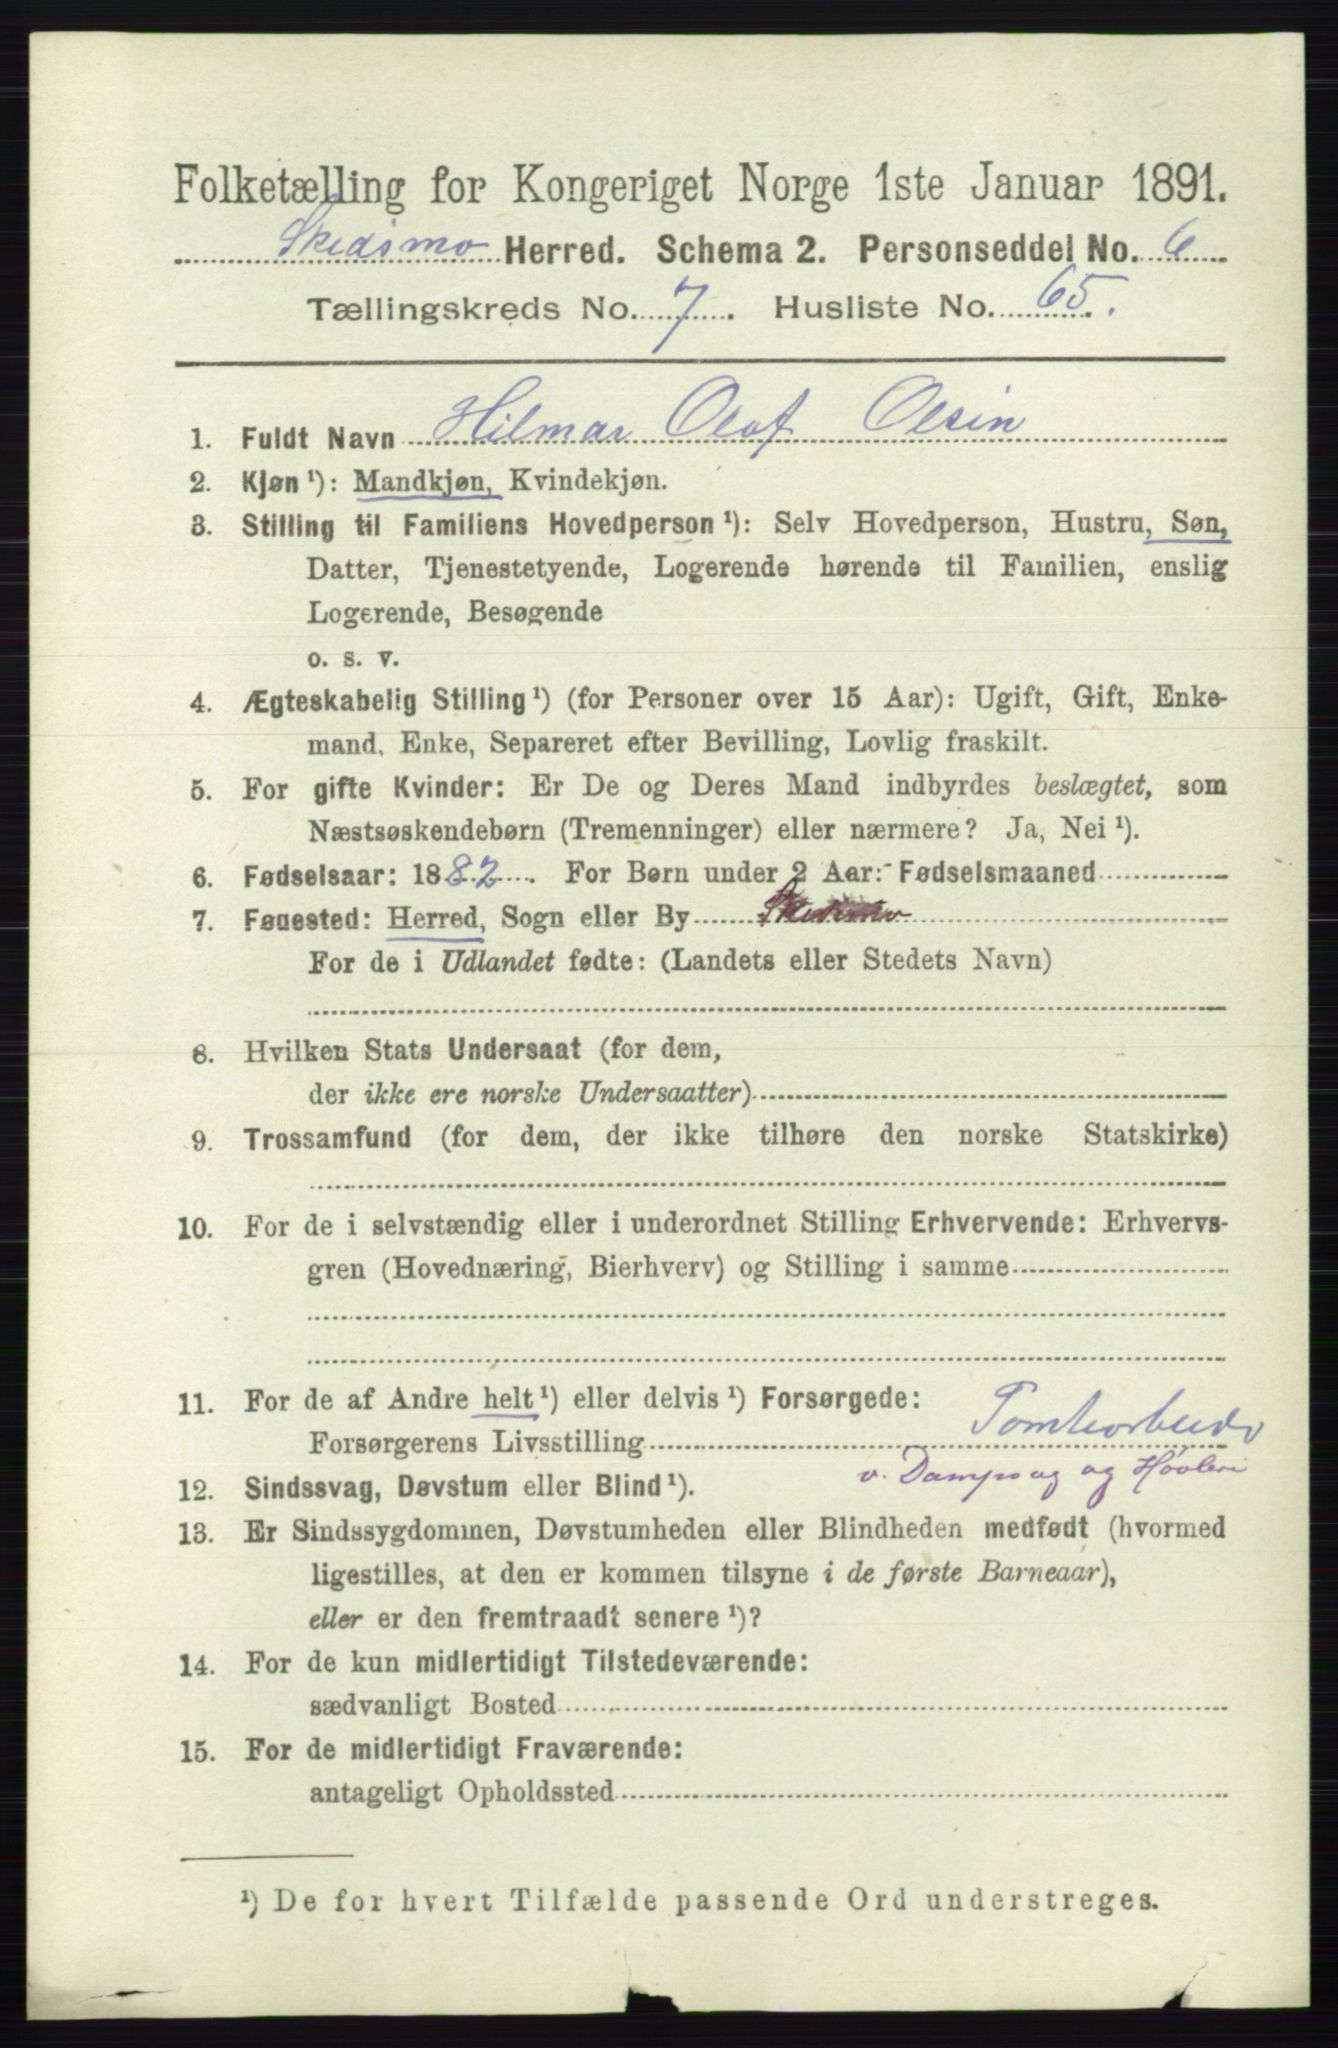 Folketælling for Kongeriget Norge 1ste Januar 1891.
Skedsmo Herred. Schema 2. Personseddel No. 6
Tællingskreds No. 7. Husliste No. 65.
1. Fuldt Navn Hilmar Olaf Olsen
2. Kjøn ¹): Mandkjøn, Kvindekjøn.
3. Stilling til Familiens Hovedperson ¹): Selv Hovedperson, Hustru, Søn,
Datter, Tjenestetyende, Logerende hørende til Familien, enslig
Logerende, Besøgende
o. s. v.
4. Ægteskabelig Stilling ¹) (for Personer over 15 Aar): Ugift, Gift, Enke-
mand, Enke, Separeret efter Bevilling, Lovlig fraskilt.
5. For gifte Kvinder: Er De og Deres Mand indbyrdes beslægtet, som
Næstsøskendebørn (Tremenninger) eller nærmere? Ja, Nei ¹).
6. Fødselsaar: 1882. For Børn under 2 Aar: Fødselsmaaned
7. Fødested: Herred, Sogn eller By Skedsmo
For de i Udlandet fødte: (Landets eller Stedets Navn)
8. Hvilken Stats Undersaat (for dem,
der ikke ere norske Undersaatter)
9. Trossamfund (for dem, der ikke tilhøre den norske Statskirke)
10. For de i selvstændig eller i underordnet Stilling Erhvervende: Erhvervs-
gren (Hovednæring, Bierhverv) og Stilling i samme
11. For de af Andre helt ¹) eller delvis ¹) Forsørgede:
Forsørgerens Livsstilling Tomtearbeider
v. Dampsag og Høvleri
12. Sindssvag, Døvstum eller Blind ¹).
13. Er Sindssygdommen, Døvstumheden eller Blindheden medfødt (hvormed
ligestilles, at den er kommen tilsyne i de første Barneaar),
eller er den fremtraadt senere ¹)?
14. For de kun midlertidigt Tilstedeværende:
sædvanligt Bosted
15. For de midlertidigt Fraværende:
antageligt Opholdssted
¹) De for hvert Tilfælde passende Ord understreges.